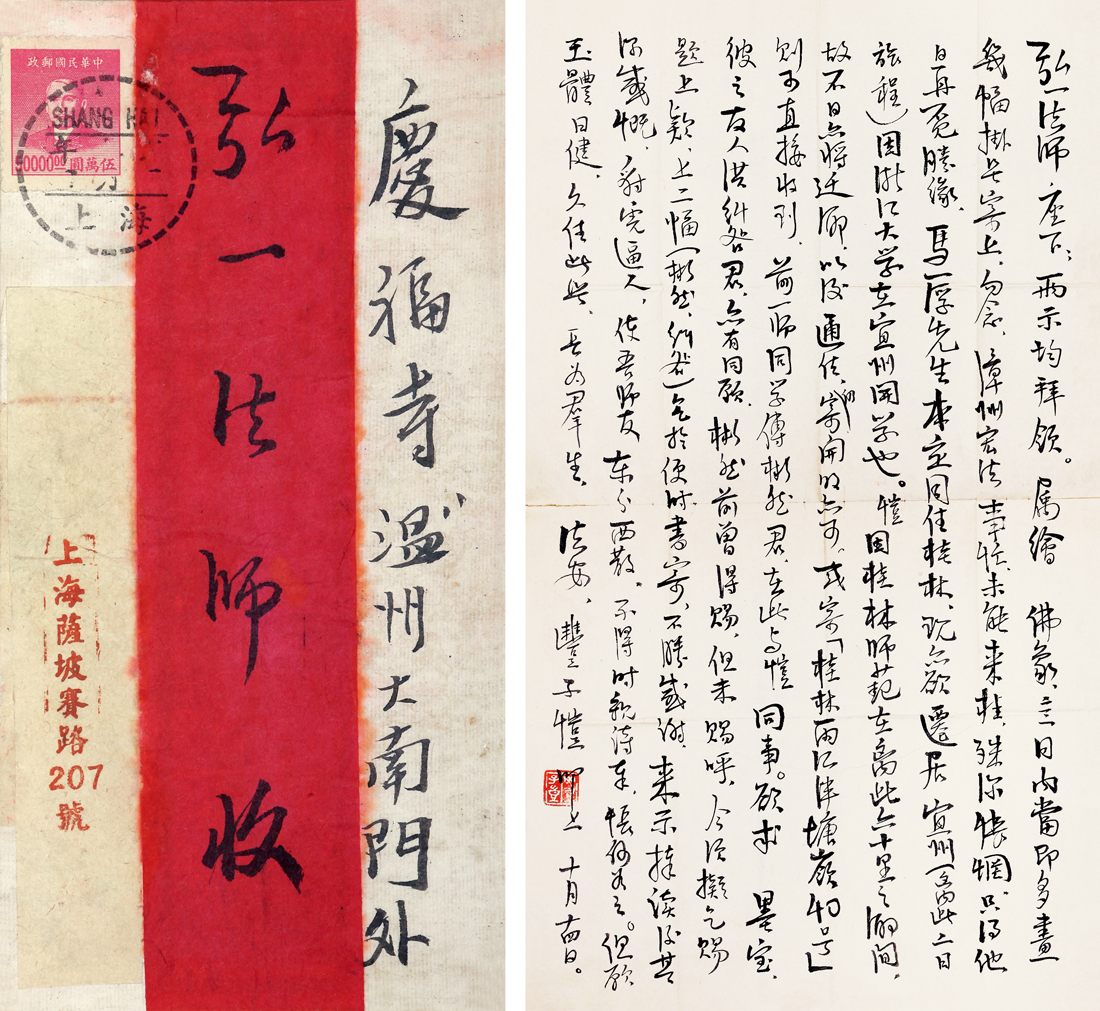 中華民國郵政
50000.00 伍萬圓
SHANG HAI
上海
慶福寺溫州大南門外
弘一法師收
上海薩坡賽路207號
弘一法師座下：兩示均拜領。屬繪 佛象，三日內當即多畫
幾幅掛號寄上，勿念。漳州宏法 未能來桂，殊深悵惘。只得他
日再覓勝緣。馬一浮先生本定同住桂林，現亦欲遷居宜州（離此二日
旅程）因浙江大学在宜州開学也。愷因桂林師範在离此六十里之 間，
故不日亦將迁 ，以後通信，寄開明亦可，或寄「桂林兩江泮塘嶺40号」
則可直接收到。前一師同学傅彬然君，在此与愷 同事。欲求 墨宝，
彼之友人洪 君，亦有同願。彬然前曾得賜，但未賜呼，今須擬乞賜
題上款，上二幅（彬然， ）乞於便時書寄，不勝感謝。来示捧读後甚
深感慨，豺虎逼人，使吾師友東分西散，不得时親 ，悵何如之。但願
玉體日健，久住此 ，長为羣生。 法安。豐子愷 上 十月 日。